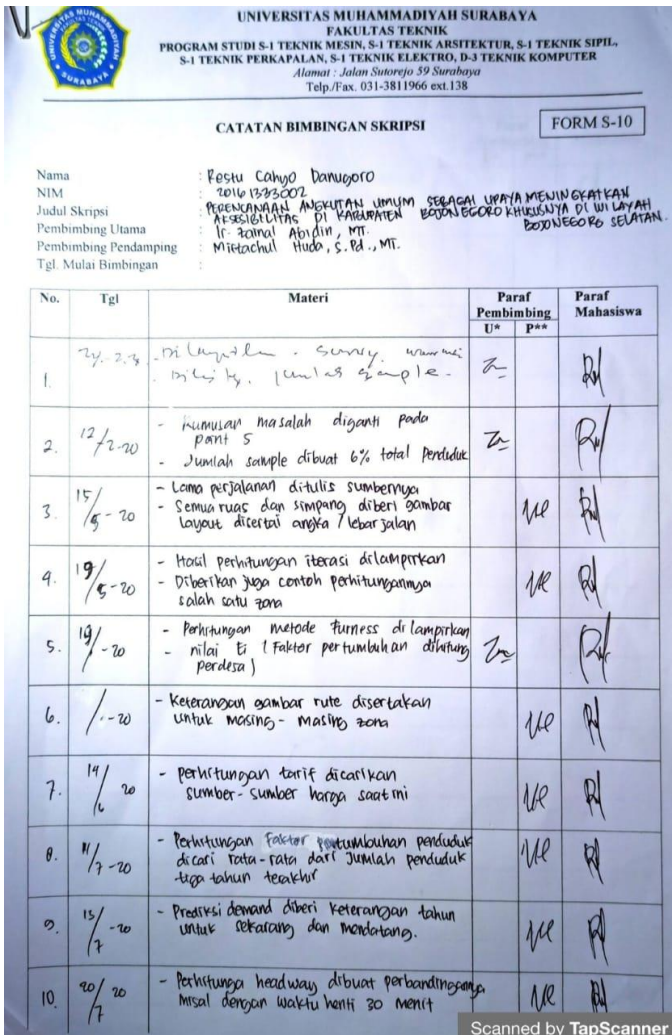 UNIVERSITAS MUHAMMADIYAH SURABAYA
FAKULTAS TEKNIK
PROGRAM STUDI S-1 TEKNIK MESIN, S-1 TEKNIK ARSITEKTUR, S-1 TEKNIK SIPIL,
S-1 TEKNIK PERKAPALAN, S-1 TEKNIK ELEKTRO, D-3 TEKNIK KOMPUTER
Alamat : Jalan Sutorejo 59 Surabaya
Telp./Fax. 031-3811966 ext.138
CATATAN BIMBINGAN SKRIPSI
FORM S-10
Nama : Restu Cahyo Danugoro
NIM : 20161333002
Judul Skripsi : PERENCANAAN ANGKUTAN UMUM SEBAGAI UPAYA MENINGKATKAN
AKSESIBILITAS DI KABUPATEN BOJONEGORO KHUSUSNYA DI WILAYAH
BOJONEGORO SELATAN.
Pembimbing Utama : Ir. Zainal Abidin, MT.
Pembimbing Pendamping : Miftachul Huda, S.Pd., MT.
Tgl. Mulai Bimbingan :
No. Tgl Materi Paraf Pembimbing Paraf Mahasiswa
U* P**
1. survey
jumlah sample
2. 12/2-20 - Rumusan masalah diganti pada
point 5
- Jumlah sample dibuat 6% total Penduduk
3. 15/5-20 - Lama perjalanan ditulis sumbernya
- Semua ruas dan simpang diberi gambar
layout disertai angka / lebar jalan
4. 19/5-20 - Hasil perhitungan iterasi dilampirkan
- Diberikan juga contoh perhitungannya
salah satu zona
5. 19/-20 - Perhitungan metode Furness dilampirkan
- nilai Ei (Faktor pertumbuhan dihitung
perdesa)
6. -20 - Keterangan gambar rute disertakan
untuk masing-masing zona
7. 14/6 20 - perhitungan tarif dicarikan
sumber-sumber harga saat ini
8. 11/7-20 - Perhitungan Faktor pertumbuhan penduduk
dicari rata-rata dari Jumlah penduduk
tiga tahun terakhir
9. 15/7-20 - Prediksi demand diberi keterangan tahun
untuk sekarang dan mendatang.
10. 20/7 20 - Perhitunga headway dibuat perbandingannya
misal dengan waktu henti 30 menit
Scanned by TapScanner